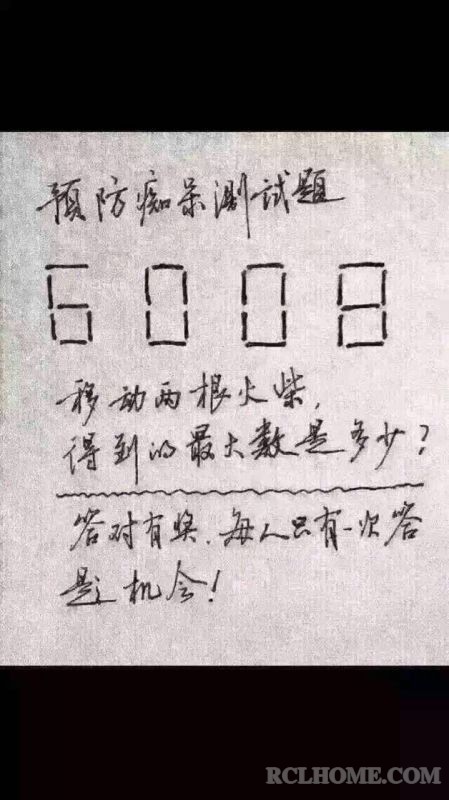 预防痴呆测试题
6008
移动两根火柴,
得到的最大数是多少?
答对有奖.每人只有一次答
题机会!
RCLHOME.COM